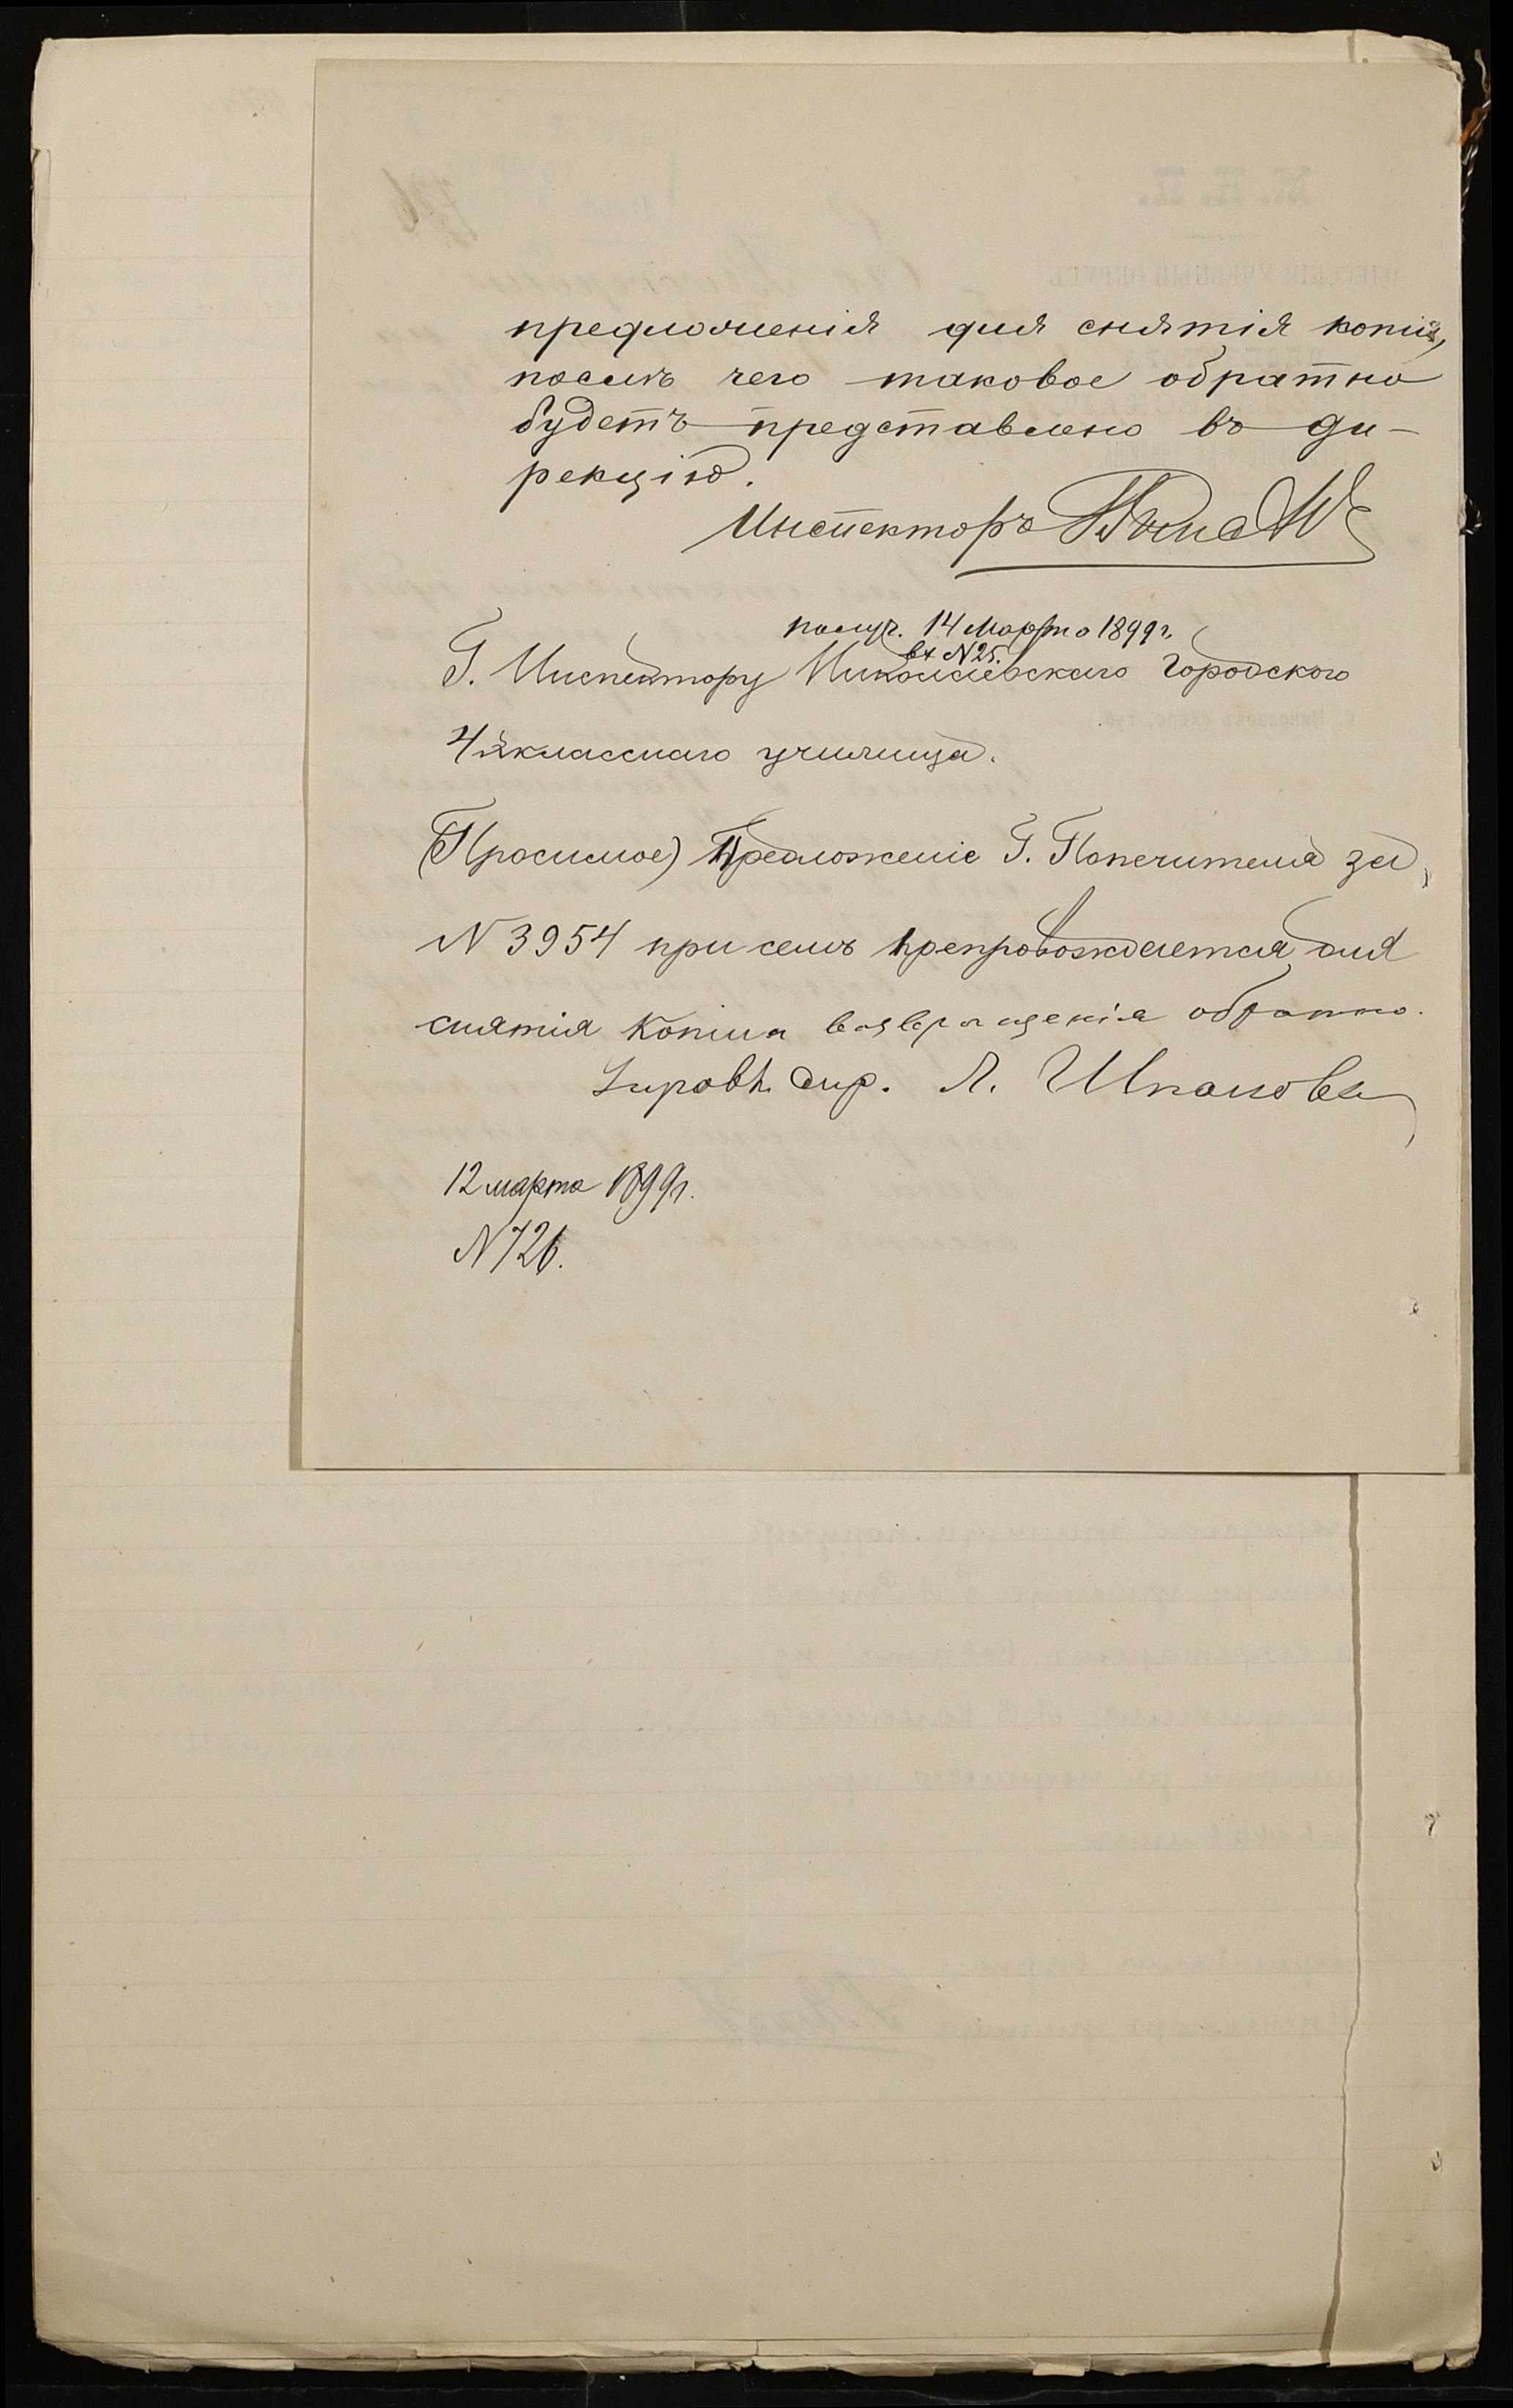 предложенія для снятія копіи,
послѣ чего таковое обратно
будетъ представлено въ ди-
рекцію.
Инспекторъ
получ. 14 Марта 1899 г.
вх N 25.
Г. Инспектору Николаевскаго Городского
4хкласснаго училища.
(Просимое) Предложеніе Г. Попечителя за
N 3954 при семъ препровождается для
снятія копіи и возвращенія обратно.
дир. А.
12 марта 1899 г.
N 726.